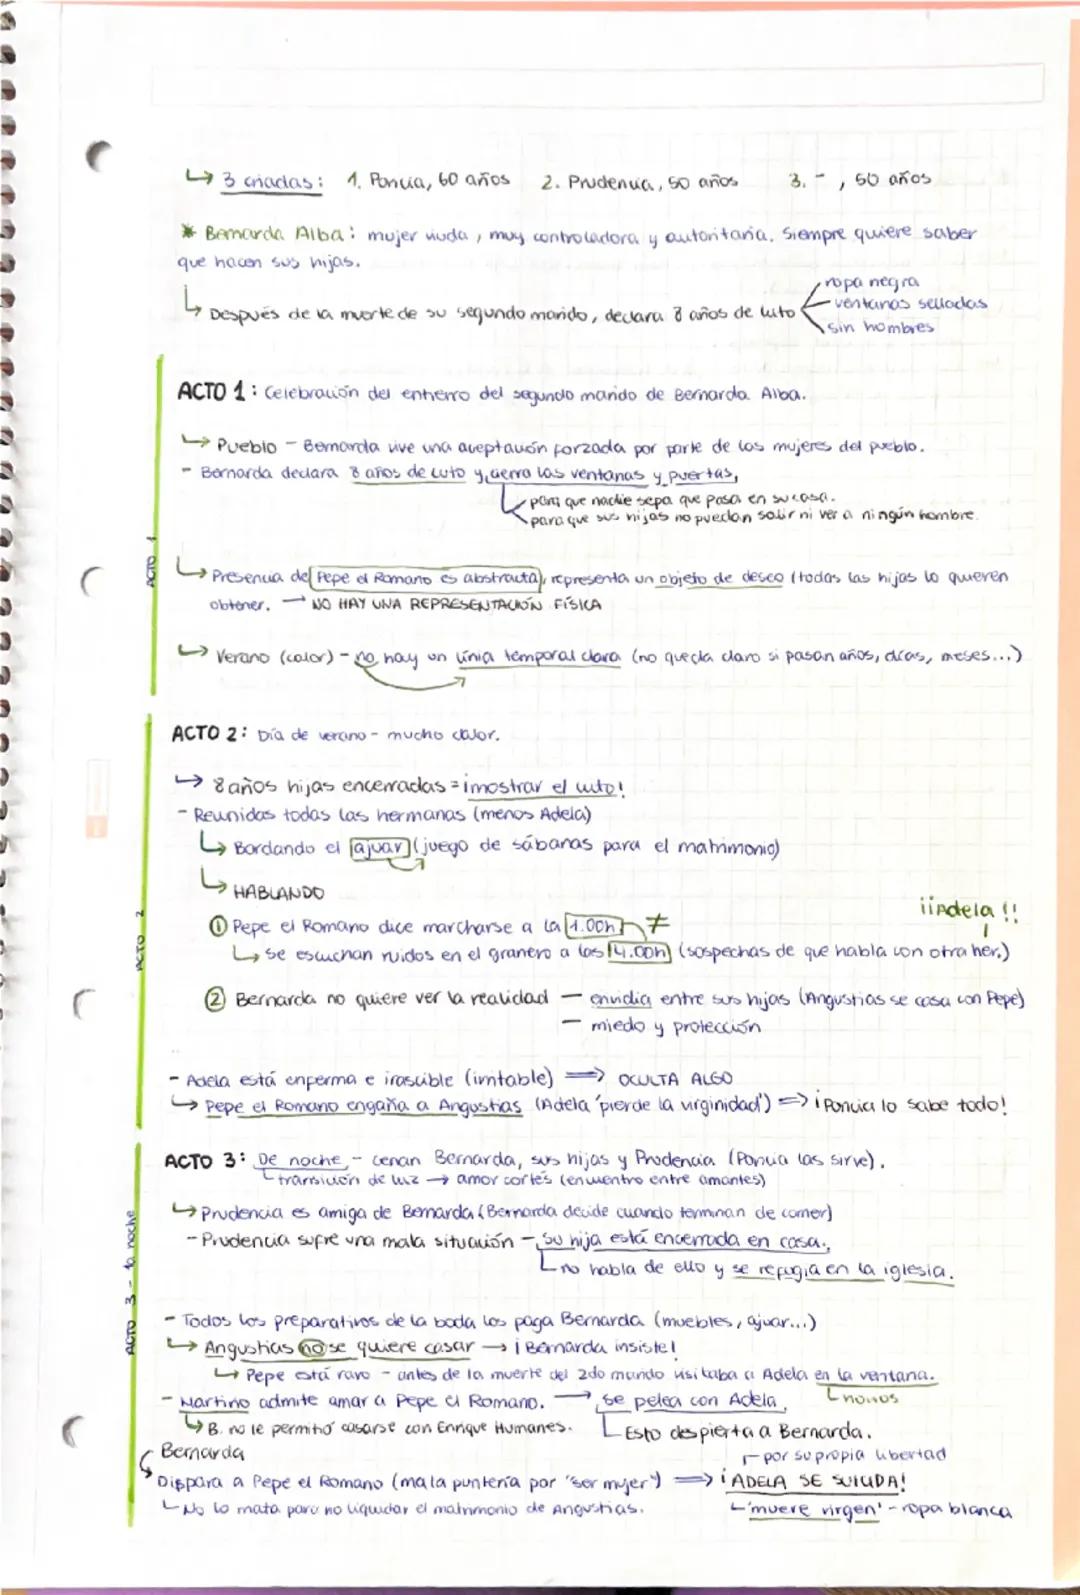 ↳ 3 criadas: 1. Poncia, 60 años 2. Prudencia, 50 años 3. - , 50 años
* Bernarda Alba: mujer viuda, muy controladora y autoritaria. Siempre quiere saber
que hacen sus hijas.
↳ Después de la muerte de su segundo marido, declara 8 años de luto
ropa negra
ventanas selladas
sin hombres
ACTO 1
ACTO 1: Celebración del entierro del segundo marido de Bernarda Alba.
↳ Pueblo - Bernarda vive una aceptación forzada por parte de las mujeres del pueblo.
- Bernarda declara 8 años de luto y cierra las ventanas y puertas,
para que nadie sepa que pasa en su casa.
para que sus hijas no puedan salir ni ver a ningún hombre.
↳ Presencia de Pepe el Romano es abstracta, representa un objeto de deseo (todas las hijas lo quieren
obtener. → NO HAY UNA REPRESENTACIÓN FÍSICA
↳ Verano (calor) - no hay un línia temporal clara (no queda claro si pasan años, días, meses...)
ACTO 2
ACTO 2: Día de verano - mucho calor.
↳ 8 años hijas encerradas = ¡mostrar el luto!
- Reunidas todas las hermanas (menos Adela)
↳ Bordando el ajuar (juego de sábanas para el matrimonio)
↳ HABLANDO
¡¡Adela!!
① Pepe el Romano dice marcharse a la 1.00h ≠
↳ se escuchan ruidos en el granero a las 4.00h (sospechas de que habla con otra her.)
② Bernarda no quiere ver la realidad — envidia entre sus hijas (Angustias se casa con Pepe)
— miedo y protección
- Adela está enferma e irascible (irritable) ⇒ OCULTA ALGO
↳ Pepe el Romano engaña a Angustias (Adela 'pierde la virginidad') ⇒ ¡Poncia lo sabe todo!
ACTO 3 - la noche
ACTO 3: De noche, - cenan Bernarda, sus hijas y Prudencia (Poncia las sirve).
transición de luz → amor cortés (encuentro entre amantes)
↳ Prudencia es amiga de Bernarda (Bernarda decide cuando terminan de comer)
- Prudencia sufre una mala situación - su hija está encerrada en casa.
no habla de ello y se refugia en la iglesia.
- Todos los preparativos de la boda los paga Bernarda (muebles, ajuar...)
↳ Angustias no se quiere casar → ¡Bernarda insiste!
↳ Pepe está raro - antes de la muerte del 2do marido visitaba a Adela en la ventana.
novios
- Martirio admite amar a Pepe el Romano. → se pelea con Adela
↳ B. no le permitió casarse con Enrique Humanes.
Esto despierta a Bernarda.
Bernarda
por su propia libertad
Dispara a Pepe el Romano (mala puntería por "ser mujer") ⇒ ¡ADELA SE SUICIDA!
No lo mata para no liquidar el matrimonio de Angustias.
'muere virgen' - ropa blanca